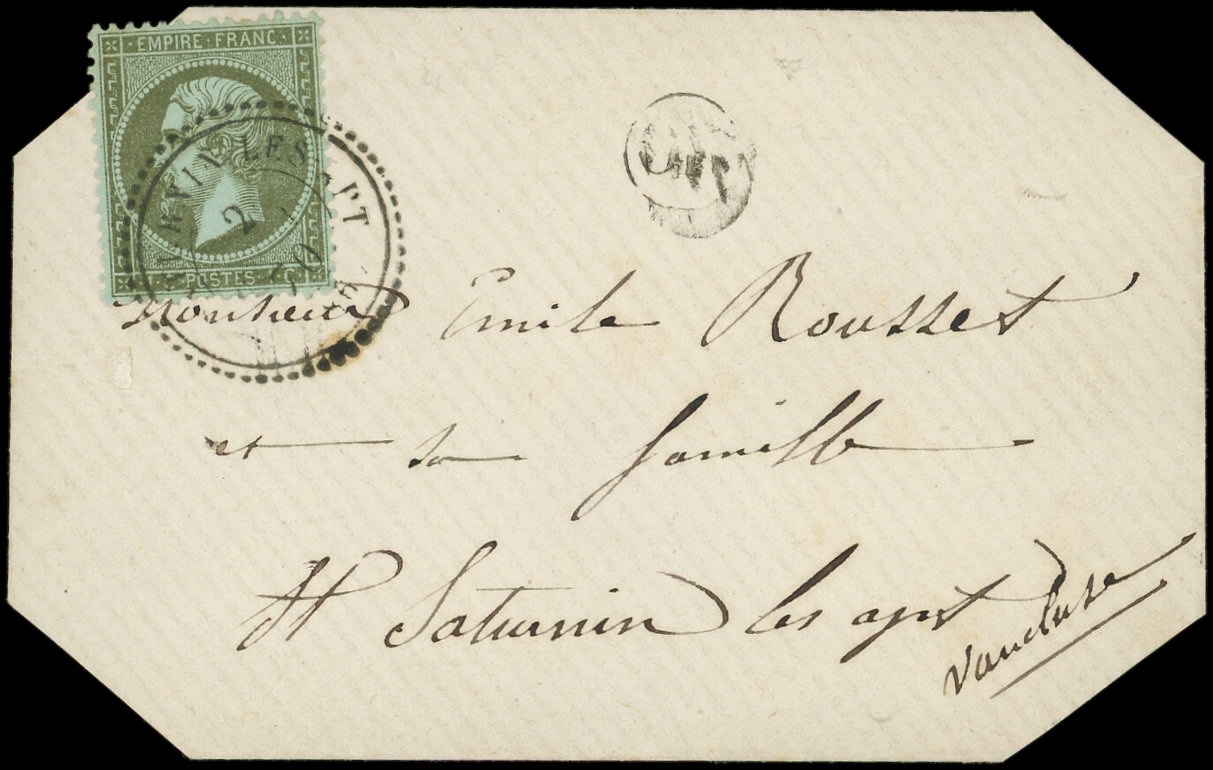 EMPIRE FRANC
POSTES
Monsieur Emile Rousset
et sa famille
St Saturnin les apt
Vaucluse